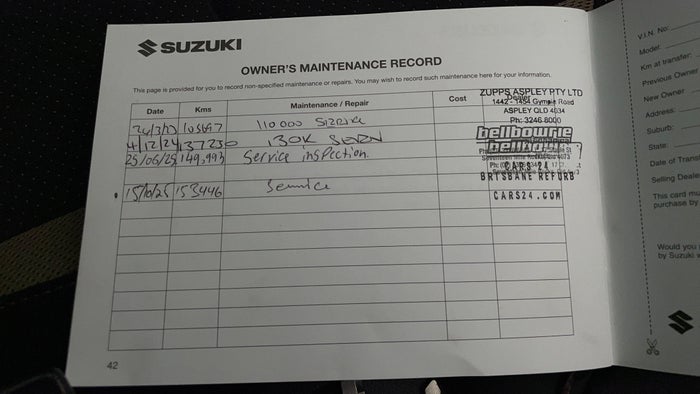 SUZUKI
OWNER'S MAINTENANCE RECORD
This page is provided for you to record non-specified maintenance or repairs. You may wish to record such maintenance here for your information.
Date Kms Maintenance / Repair Cost Dealer
ZUPPS ASPLEY PTY LTD
1442 - 1454 Gympie Road
ASPLEY QLD 4034
Ph: 3246 8000
110 000 SERVICE
4/12/24 137230 130K SERV
bellbowrie
bellbowrie
25/06/25 149,993 Service inspection.
CARS 24
BRISBANE REFURB
15/10/25 153446 Service
CARS24.COM
42
V.I.N. No:
Model:
Km at transfer:
Previous Owner
New Owner
Address:
Suburb:
State:
Date of Trans
Selling Deale
This card mu
purchase by
Would you
by Suzuki